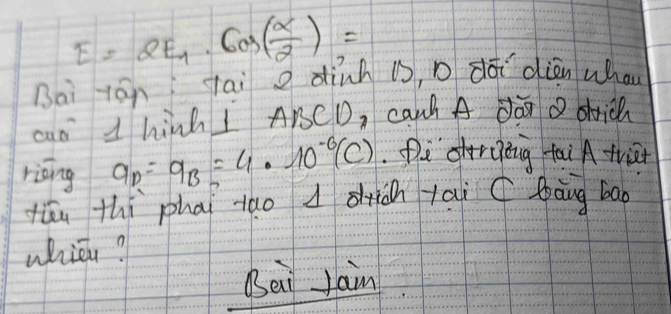 E = 2E₁ . Cos(α/2) =
Bài tập : tại 2 đỉnh B, D đối diện nhau
của 1 hình ⊥ ABCD, cạnh A đặt 2 đtích
riêng q_D = q_B = 4 . 10⁻⁶(C). Để đtrường tại A triệt
tiêu thì phải tạo 1 đtích tại C bằng bao
nhiêu ?
Bài làm